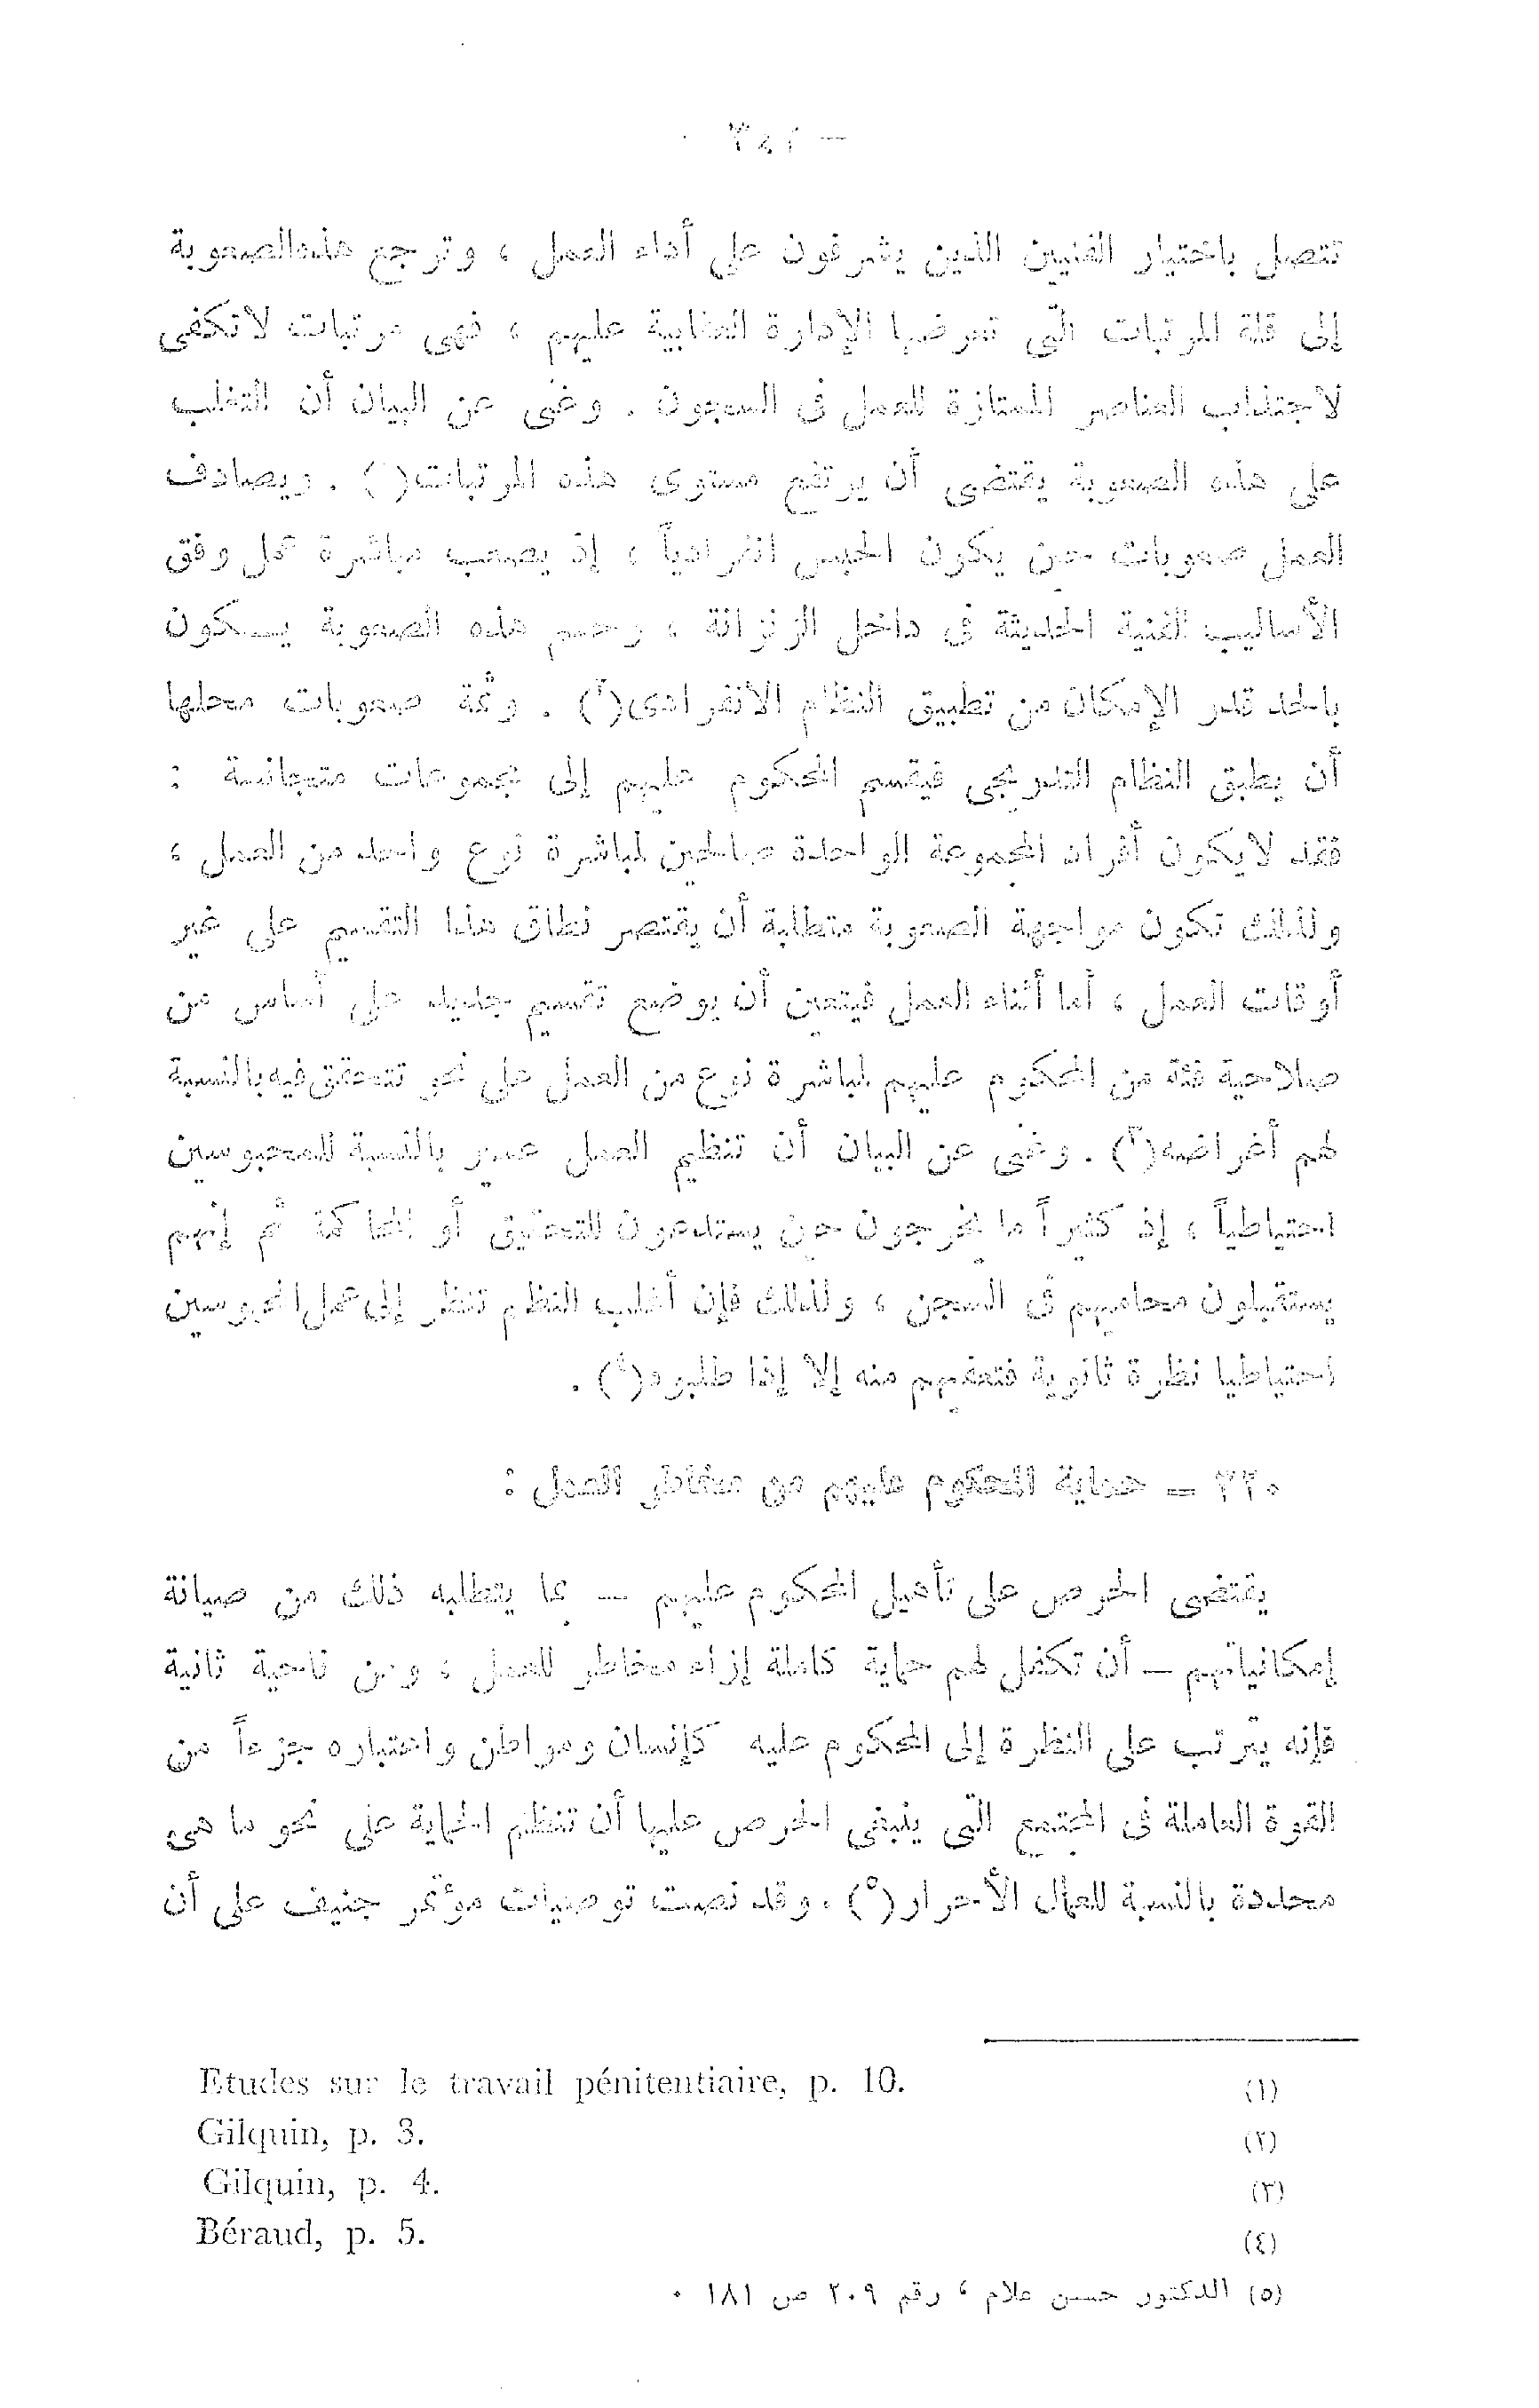 تتصل باختيار الفنيين الذين يشرفون على أداء العمل ، وترجع هذه الصعوبة
إلى قلة المرتبات التى تعرضها الإدارة العقابية عليهم ، فهى مرتبات لاتكفى
لاجتذاب العناصر الممتازة للعمل فى السجون . وغنى عن البيان أن التغلب
على هذه الصعوبة يقتضى أن يرتفع مستوى هذه المرتبات(١) . ويصادف
العمل صعوبات حين يكون الحبس انفرادياً ، إذ يصعب مباشرة عمل وفق
الأساليب الفنية الحديثة فى داخل الزنزانة ، وحسم هذه الصعوبة يسكون
بالحد قدر الإمكان من تطبيق النظام الانفرادى(٢) . وثمة صعوبات محلها
أن يطبق النظام التدريجى فيقسم المحكوم عليهم إلى مجموعات متجانسة :
فقد لايكون أفراد المجموعة الواحدة صالحين لمباشرة نوع واحد من العمل ،
ولذلك تكون مواجهة الصعوبة متطلبة أن يقتصر نطاق هذا التقسيم على غير
أوقات العمل ، أما أثناء العمل فيتعين أن يوضع تقسيم جديد على أساس من
صلاحية فئة من المحكوم عليهم لمباشرة نوع من العمل على نحو تتحقق فيه بالنسبة
لهم أغراضه(٣) . وغنى عن البيان أن تنظيم العمل عسير بالنسبة للمحبوسين
احتياطياً ، إذ كثيراً ما يخرجون حين يستدعون للتحقيق أو المحاكمة ثم إنهم
يستقبلون محاميهم فى السجن ، ولذلك فإن أغلب النظم تنظر إلى عمل المحبوسين
احتياطيا نظرة ثانوية فتعفيهم منه إلا إذا طلبوه(٤) .
٢٢٠ – حماية المحكوم عليهم من مخاطر العمل :
يقتضى الحرص على تأهيل المحكوم عليهم – بما يتطلبه ذلك من صيانة
إمكانياتهم – أن تكفل لهم حماية كاملة إزاء مخاطر للعمل ، ومن ناحية ثانية
فإنه يترتب على النظرة إلى المحكوم عليه كإنسان ومواطن واعتباره جزءاً من
القوة العاملة فى المجتمع التى ينبغى الحرص عليها أن تنظم الحماية على نحو ما هى
محددة بالنسبة للعمال الأحرار(٥) . وقد نصت توصيات مؤتمر جنيف على أن
(١) Etudes sur le travail pénitentiaire, p. 10.
(٢) Gilquin, p. 3.
(٣) Gilquin, p. 4.
(٤) Béraud, p. 5.
(٥) الدكتور حسن علام ، رقم ٢٠٩ ص ١٨١ .